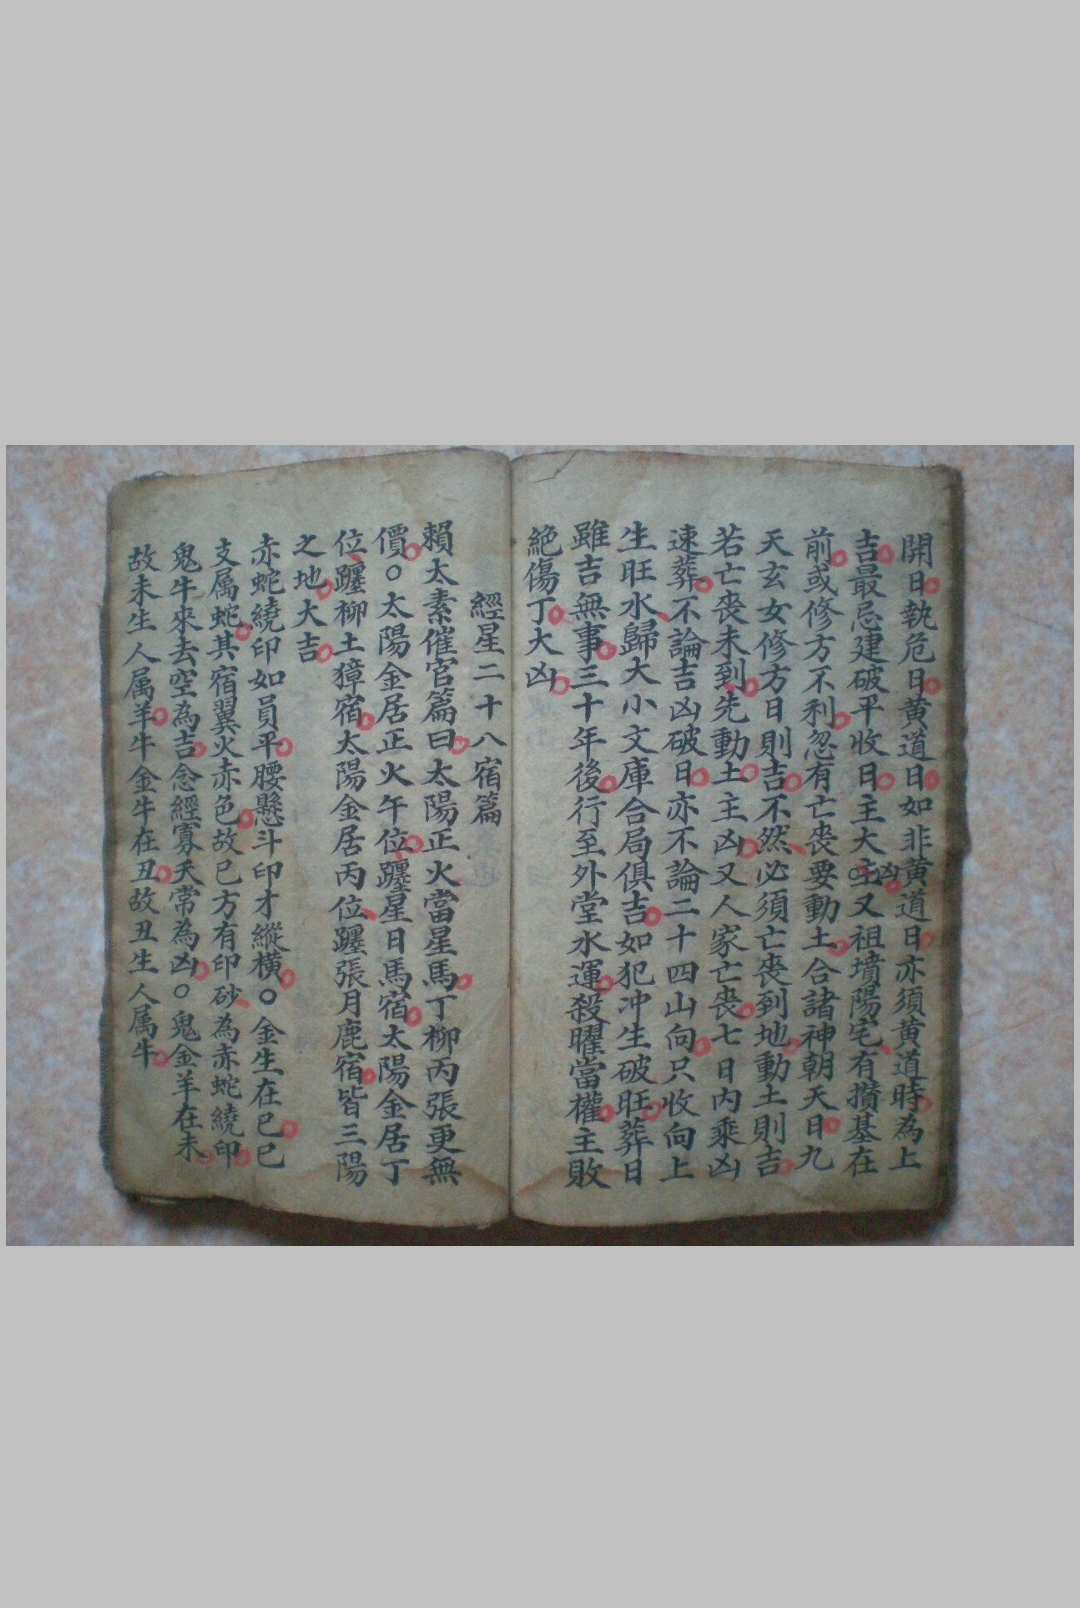 開日執危日黄道日如非黄道日亦須黄道時為上
吉最忌建破平收日主大凶主又祖墳陽宅有攢基在
前或修方不利忽有亡喪要動土合諸神朝天日九
天玄女修方日則吉不然必須亡喪到地動土則吉
若亡喪未到先動土主凶又人家亡喪七日内乘凶
速葬不論吉凶破日亦不論二十四山向只收向上
生旺水歸大小文庫合局俱吉如犯冲生破旺葬日
雖吉無事三十年後行至外堂水運殺曜當權主敗
絶傷丁大凶
經星二十八宿篇
賴太素催官篇曰太陽正火當星馬丁柳丙張更無
價○太陽金居正火午位躔星日馬宿太陽金居丁
位躔柳土獐宿太陽金居丙位躔張月鹿宿皆三陽
之地大吉
赤蛇繞印如員平腰懸斗印才縱橫○金生在巳巳
支属蛇其宿翼火赤色故巳方有印砂為赤蛇繞印
鬼牛來去空為吉念經寡夭常為凶○鬼金羊在未
故未生人属羊牛金牛在丑故丑生人属牛